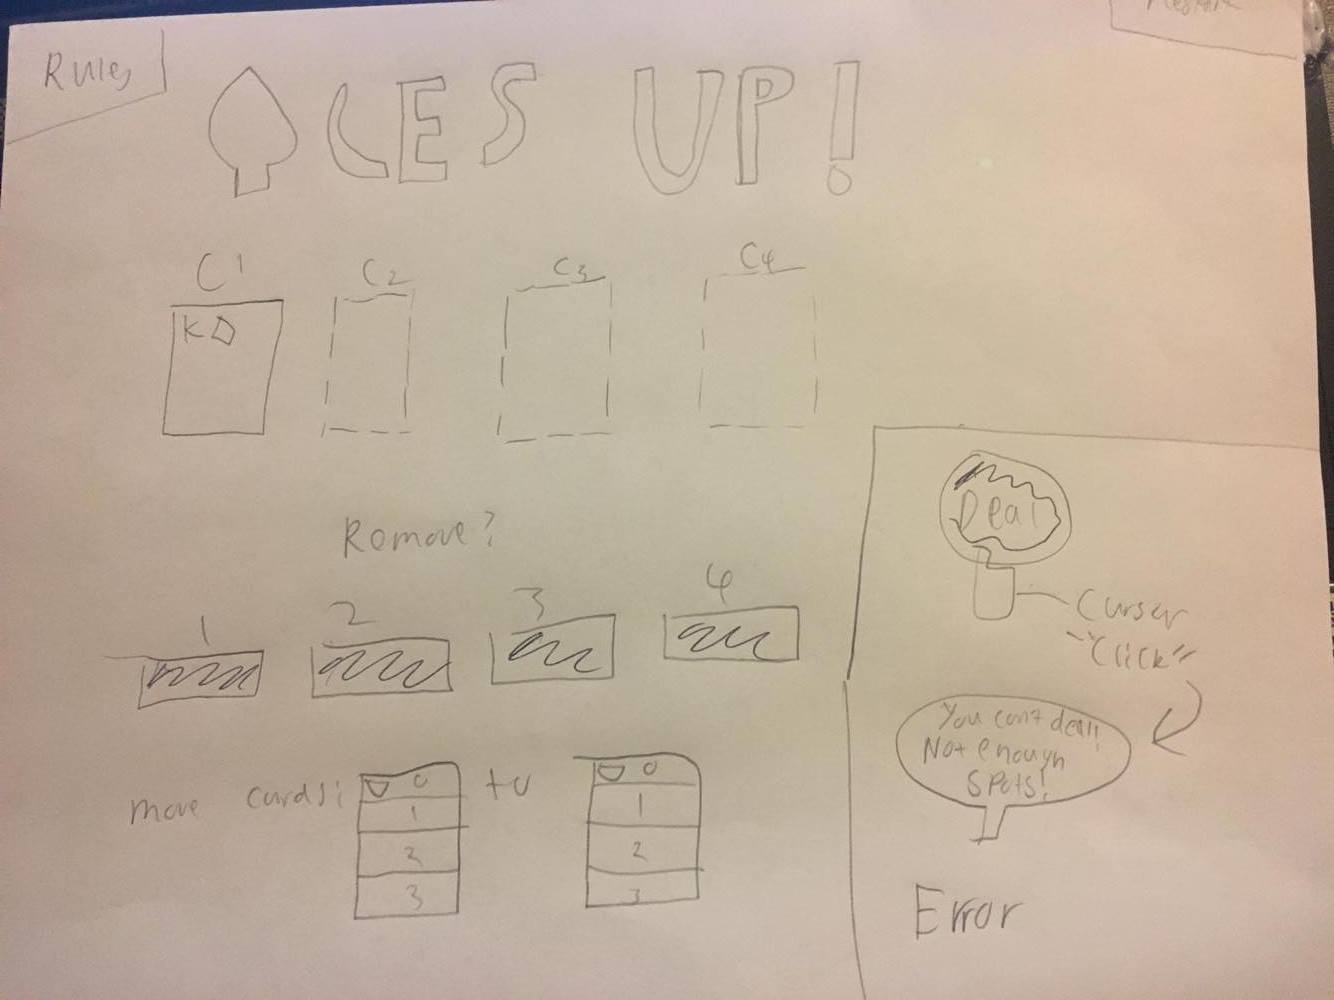 Rules
ACES UP!
C1 C2 C3 C4
K
Remove?
1 2 3 4
move cards: 0 to 0
1 1
2 2
3 3
Deal
Curser
"Click"
You can't deal!
Not enough
spots!
Error